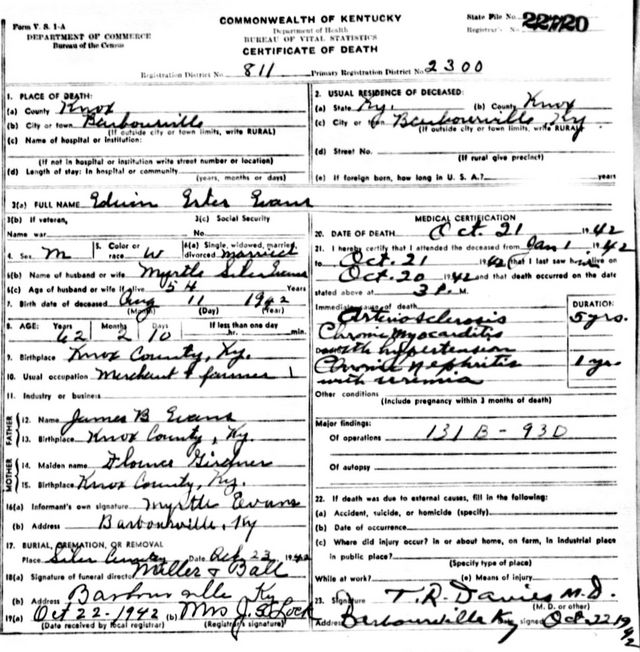 Form V. S. 1-A
DEPARTMENT OF COMMERCE
Bureau of the Census
COMMONWEALTH OF KENTUCKY
Department of Health
BUREAU OF VITAL STATISTICS
CERTIFICATE OF DEATH
State File No. 22720
Registrar's No.
Registration District No. 811 Primary Registration District No. 2300
1. PLACE OF DEATH:
(a) County Knox
(b) City or town Barbourville
(If outside city or town limits, write RURAL)
(c) Name of hospital or institution:
(If not in hospital or institution write street number or location)
(d) Length of stay: In hospital or community
(years, months or days)
2. USUAL RESIDENCE OF DECEASED:
(a) State Ky. (b) County Knox
(c) City or town Barbourville Ky.
(If outside city or town limits, write RURAL)
(d) Street No.
(If rural give precinct)
(e) If foreign born, how long in U. S. A.? years
3(a) FULL NAME Edwin Evans
3(b) If veteran, 3(c) Social Security
Name war No.
4. Sex M 5. Color or race W 6(a) Single, widowed, married, divorced married
6(b) Name of husband or wife Myrtle Siler Evans
6(c) Age of husband or wife if alive 54 Years
7. Birth date of deceased Aug 11 1942
(Month) (Day) (Year)
8. AGE: Years Months Days If less than one day
62 2 10 hr. min.
9. Birthplace Knox County, Ky.
10. Usual occupation Merchant & farmer 1
11. Industry or business
FATHER
12. Name James B Evans
13. Birthplace Knox County, Ky.
MOTHER
14. Maiden name Girdner
15. Birthplace Knox County, Ky.
16(a) Informant's own signature Myrtle Evans
(b) Address Barbourville, Ky
17. BURIAL, CREMATION, OR REMOVAL
Place Siler Date Oct 23 1942
18(a) Signature of funeral director Miller & Ball
(b) Address Barbourville Ky
19(a) Oct 22-1942 (b) Mrs J. Lock
(Date received by local registrar) (Registrar's signature)
MEDICAL CERTIFICATION
20. DATE OF DEATH Oct. 21 1942
21. I hereby certify that I attended the deceased from Jan 1 1942
to Oct. 21 1942 that I last saw him alive on
Oct. 20 1942 and that death occurred on the date
stated above at 3 P. M.
Immediate cause of death DURATION:
Arteriosclerosis 5 yrs.
Chronic Myocarditis
Due to with hypertension
Chronic Nephritis 1 yrs
with uremia
Other conditions
(Include pregnancy within 3 months of death)
Major findings:
Of operations 131 B - 93D
Of autopsy
22. If death was due to external causes, fill in the following:
(a) Accident, suicide, or homicide (specify)
(b) Date of occurrence
(c) Where did injury occur? In or about home, on farm, in industrial place
in public place?
(Specify type of place)
While at work? (e) Means of injury
23. Signature T. R. Davies M.D.
(M. D. or other)
Address Barbourville Ky Date signed Oct-22 1942